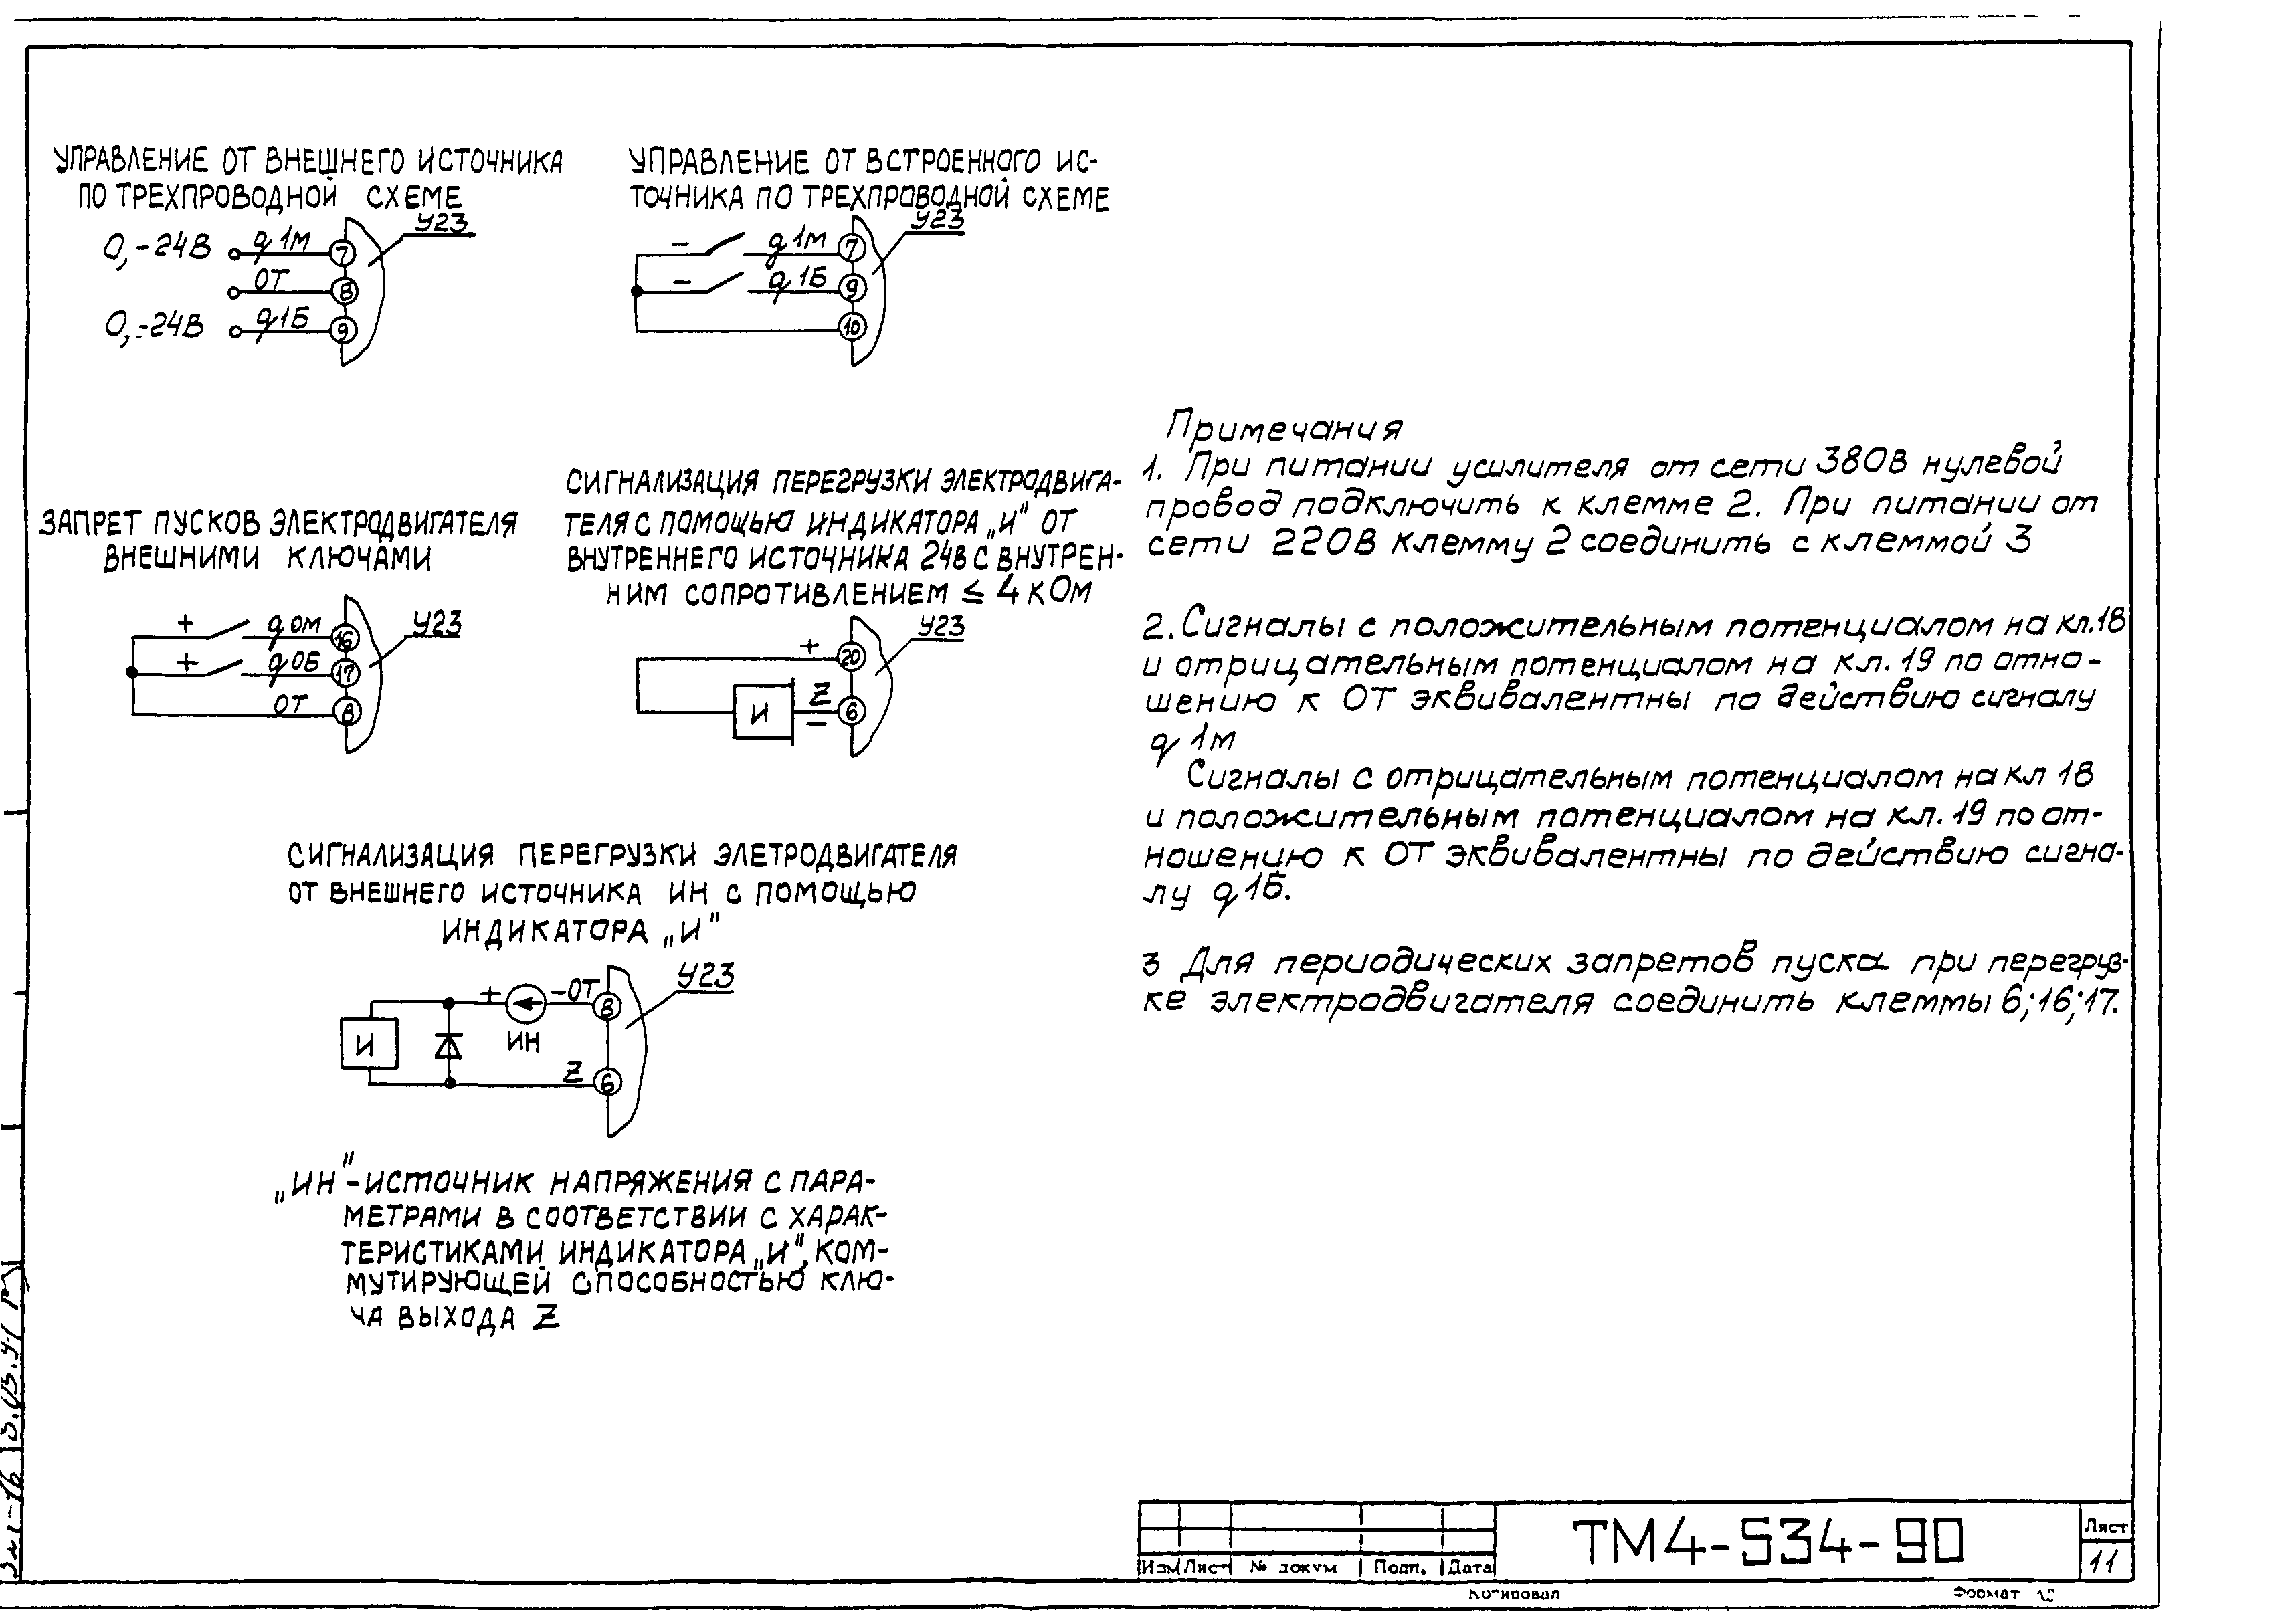 УПРАВЛЕНИЕ ОТ ВНЕШНЕГО ИСТОЧНИКА
ПО ТРЕХПРОВОДНОЙ СХЕМЕ
У23
0,-24В q1м 7
ОТ 8
0,-24В q1Б 9
УПРАВЛЕНИЕ ОТ ВСТРОЕННОГО ИС-
ТОЧНИКА ПО ТРЕХПРОВОДНОЙ СХЕМЕ
У23
- q1м 7
- q1Б 9
10
ЗАПРЕТ ПУСКОВ ЭЛЕКТРОДВИГАТЕЛЯ
ВНЕШНИМИ КЛЮЧАМИ
+ q0м 16 У23
+ q0Б 17
ОТ 8
СИГНАЛИЗАЦИЯ ПЕРЕГРУЗКИ ЭЛЕКТРОДВИГА-
ТЕЛЯ С ПОМОЩЬЮ ИНДИКАТОРА „И" ОТ
ВНУТРЕННЕГО ИСТОЧНИКА 24В С ВНУТРЕН-
НИМ СОПРОТИВЛЕНИЕМ ≤ 4 кОм
У23
+ 20
И Z - 6
СИГНАЛИЗАЦИЯ ПЕРЕГРУЗКИ ЭЛЕТРОДВИГАТЕЛЯ
ОТ ВНЕШНЕГО ИСТОЧНИКА ИН С ПОМОЩЬЮ
ИНДИКАТОРА „И"
У23
+ -ОТ 8
И ИН
Z 6
„ИН"-ИСТОЧНИК НАПРЯЖЕНИЯ С ПАРА-
МЕТРАМИ В СООТВЕТСТВИИ С ХАРАК-
ТЕРИСТИКАМИ ИНДИКАТОРА „И", КОМ-
МУТИРУЮЩЕЙ СПОСОБНОСТЬЮ КЛЮ-
ЧА ВЫХОДА Z
Примечания
1. При питании усилителя от сети 380В нулевой
провод подключить к клемме 2. При питании от
сети 220В клемму 2 соединить с клеммой 3
2. Сигналы с положительным потенциалом на кл.18
и отрицательным потенциалом на кл.19 по отно-
шению к ОТ эквивалентны по действию сигналу
q1м
Сигналы с отрицательным потенциалом на кл 18
и положительным потенциалом на кл.19 по от-
ношению к ОТ эквивалентны по действию сигна-
лу q1Б.
3 Для периодических запретов пуска при перегруз-
ке электродвигателя соединить клеммы 6;16;17.
ТМ4-534-90
Лист
11
Изм Лист № докум Подп. Дата
Копировал Формат